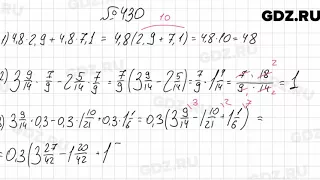 GDZ.RU
№430
10
1) 4,8·2,9 + 4,8·7,1 = 4,8(2,9 + 7,1) = 4,8·10 = 48
2) 3 9/14 · 7/9 - 2 5/14 · 7/9 = 7/9 (3 9/14 - 2 5/14) = 7/9 · 1 4/14 = 7·18/9·14 = 1
3) 3 9/14 · 0,3 - 0,3 · 1 10/21 + 0,3 · 1 1/6 = 0,3(3 9/14 - 1 10/21 + 1 1/6) =
= 0,3(3 27/42 - 1 20/42 + 1